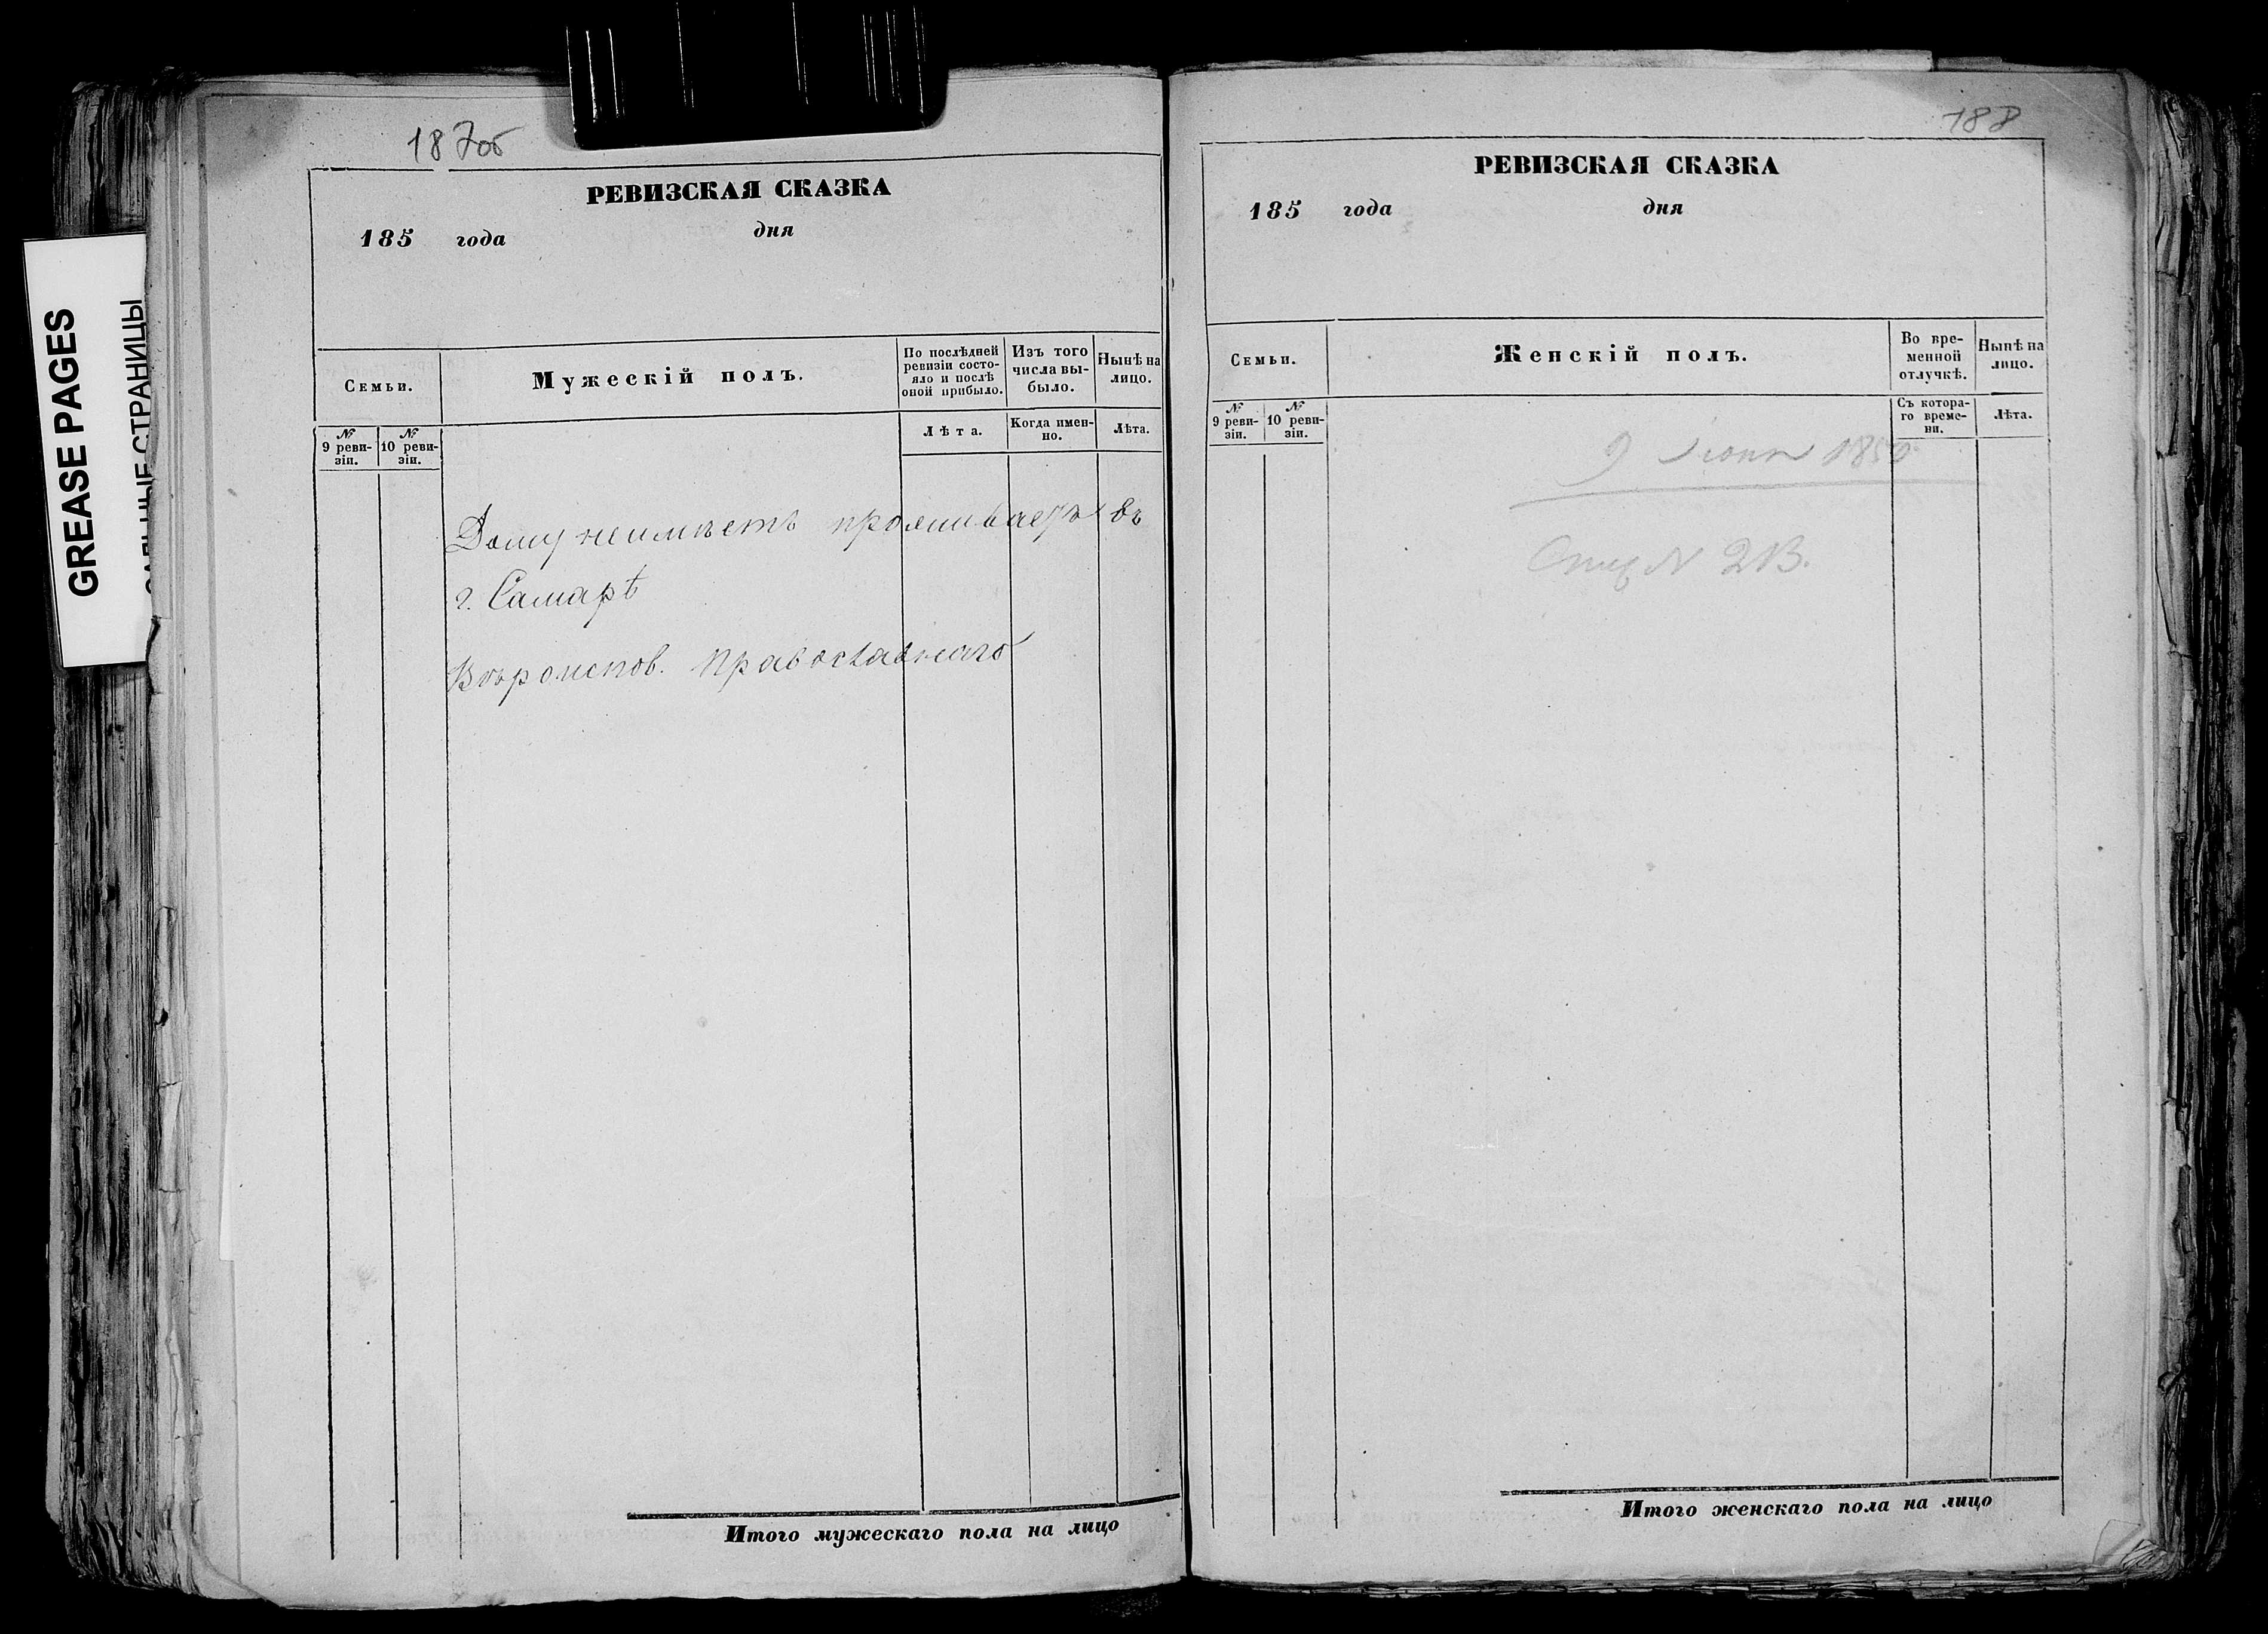 GREASE PAGES
СТРАНИЦЫ
187об
РЕВИЗСКАЯ СКАЗКА
185 года дня
Семьи.
Мужескій полъ.
По послѣдней ревизіи состо-
яло и послѣ оной прибыло.
Изъ того числа вы-
было.
Нынѣ на лицо.
№ 9 реви-
зіи.
№ 10 реви-
зіи.
Лѣта.
Когда имен-
но.
Лѣта.
Дому неимѣетъ проживаетъ въ
г. Самарѣ
Вѣроиспов. православнаго
Итого мужескаго пола на лицо
188
РЕВИЗСКАЯ СКАЗКА
185 года дня
Семьи.
Женскій полъ.
Во вре-
менной
отлучкѣ.
Нынѣ на
лицо.
№ 9 реви-
зіи.
№ 10 реви-
зіи.
Съ котора-
го време-
ни.
Лѣта.
9 1850
№
Итого женскаго пола на лицо